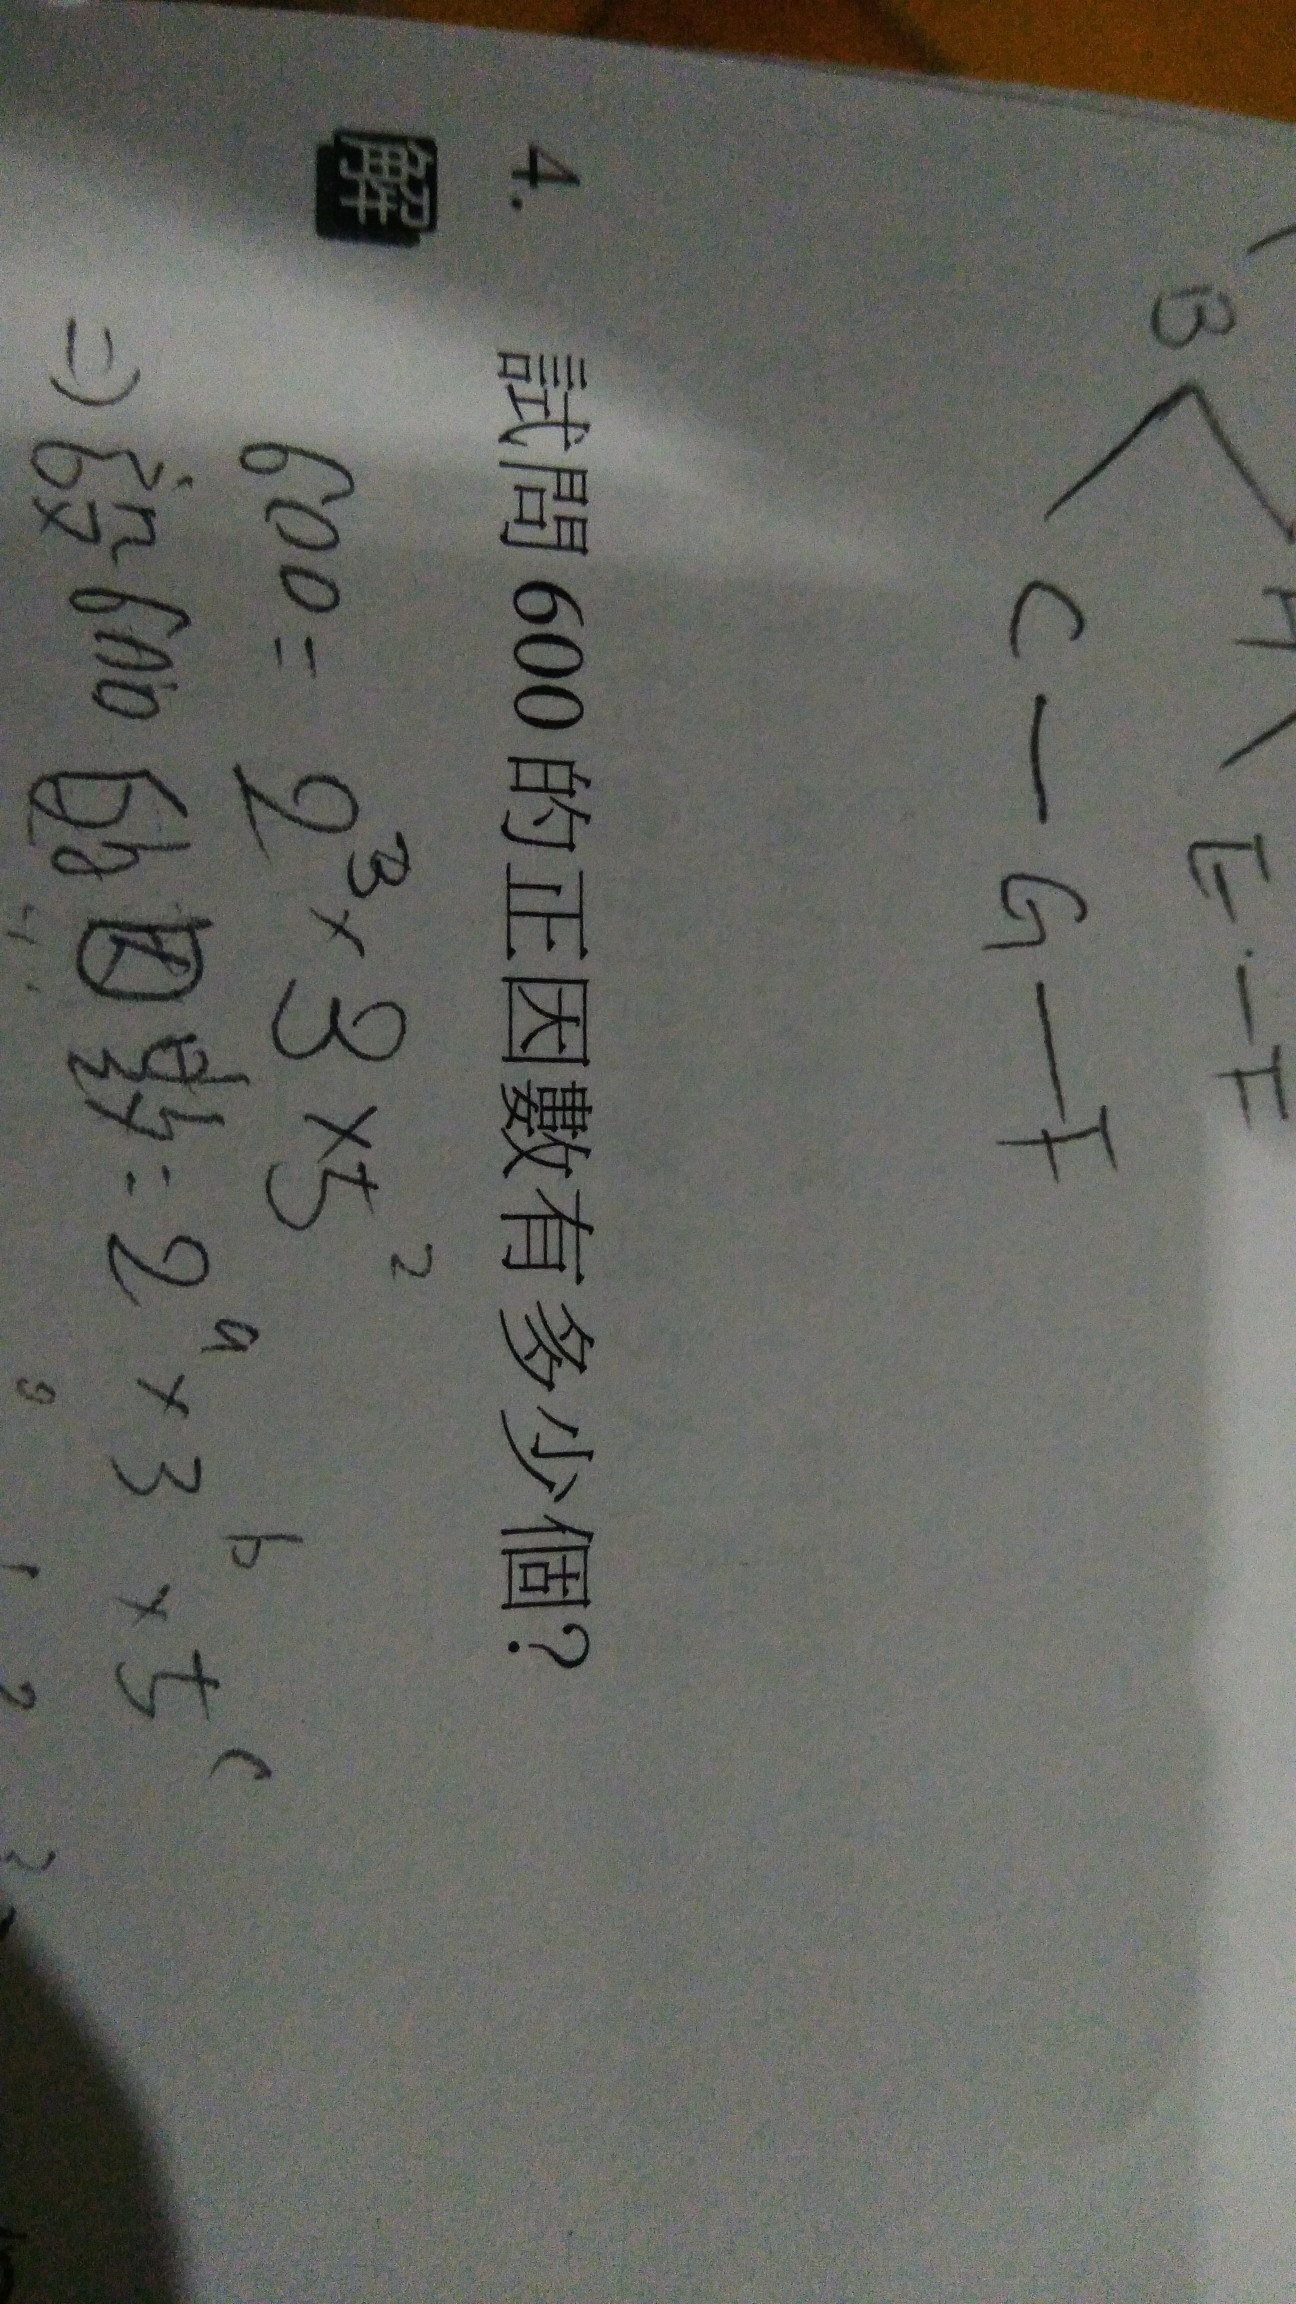 B
A
E-F
C-G-I
4. 試問600的正因數有多少個?
解
600=2³×3×5²
=) 設n600的正因數=2ᵃ×3ᵇ×5ᶜ